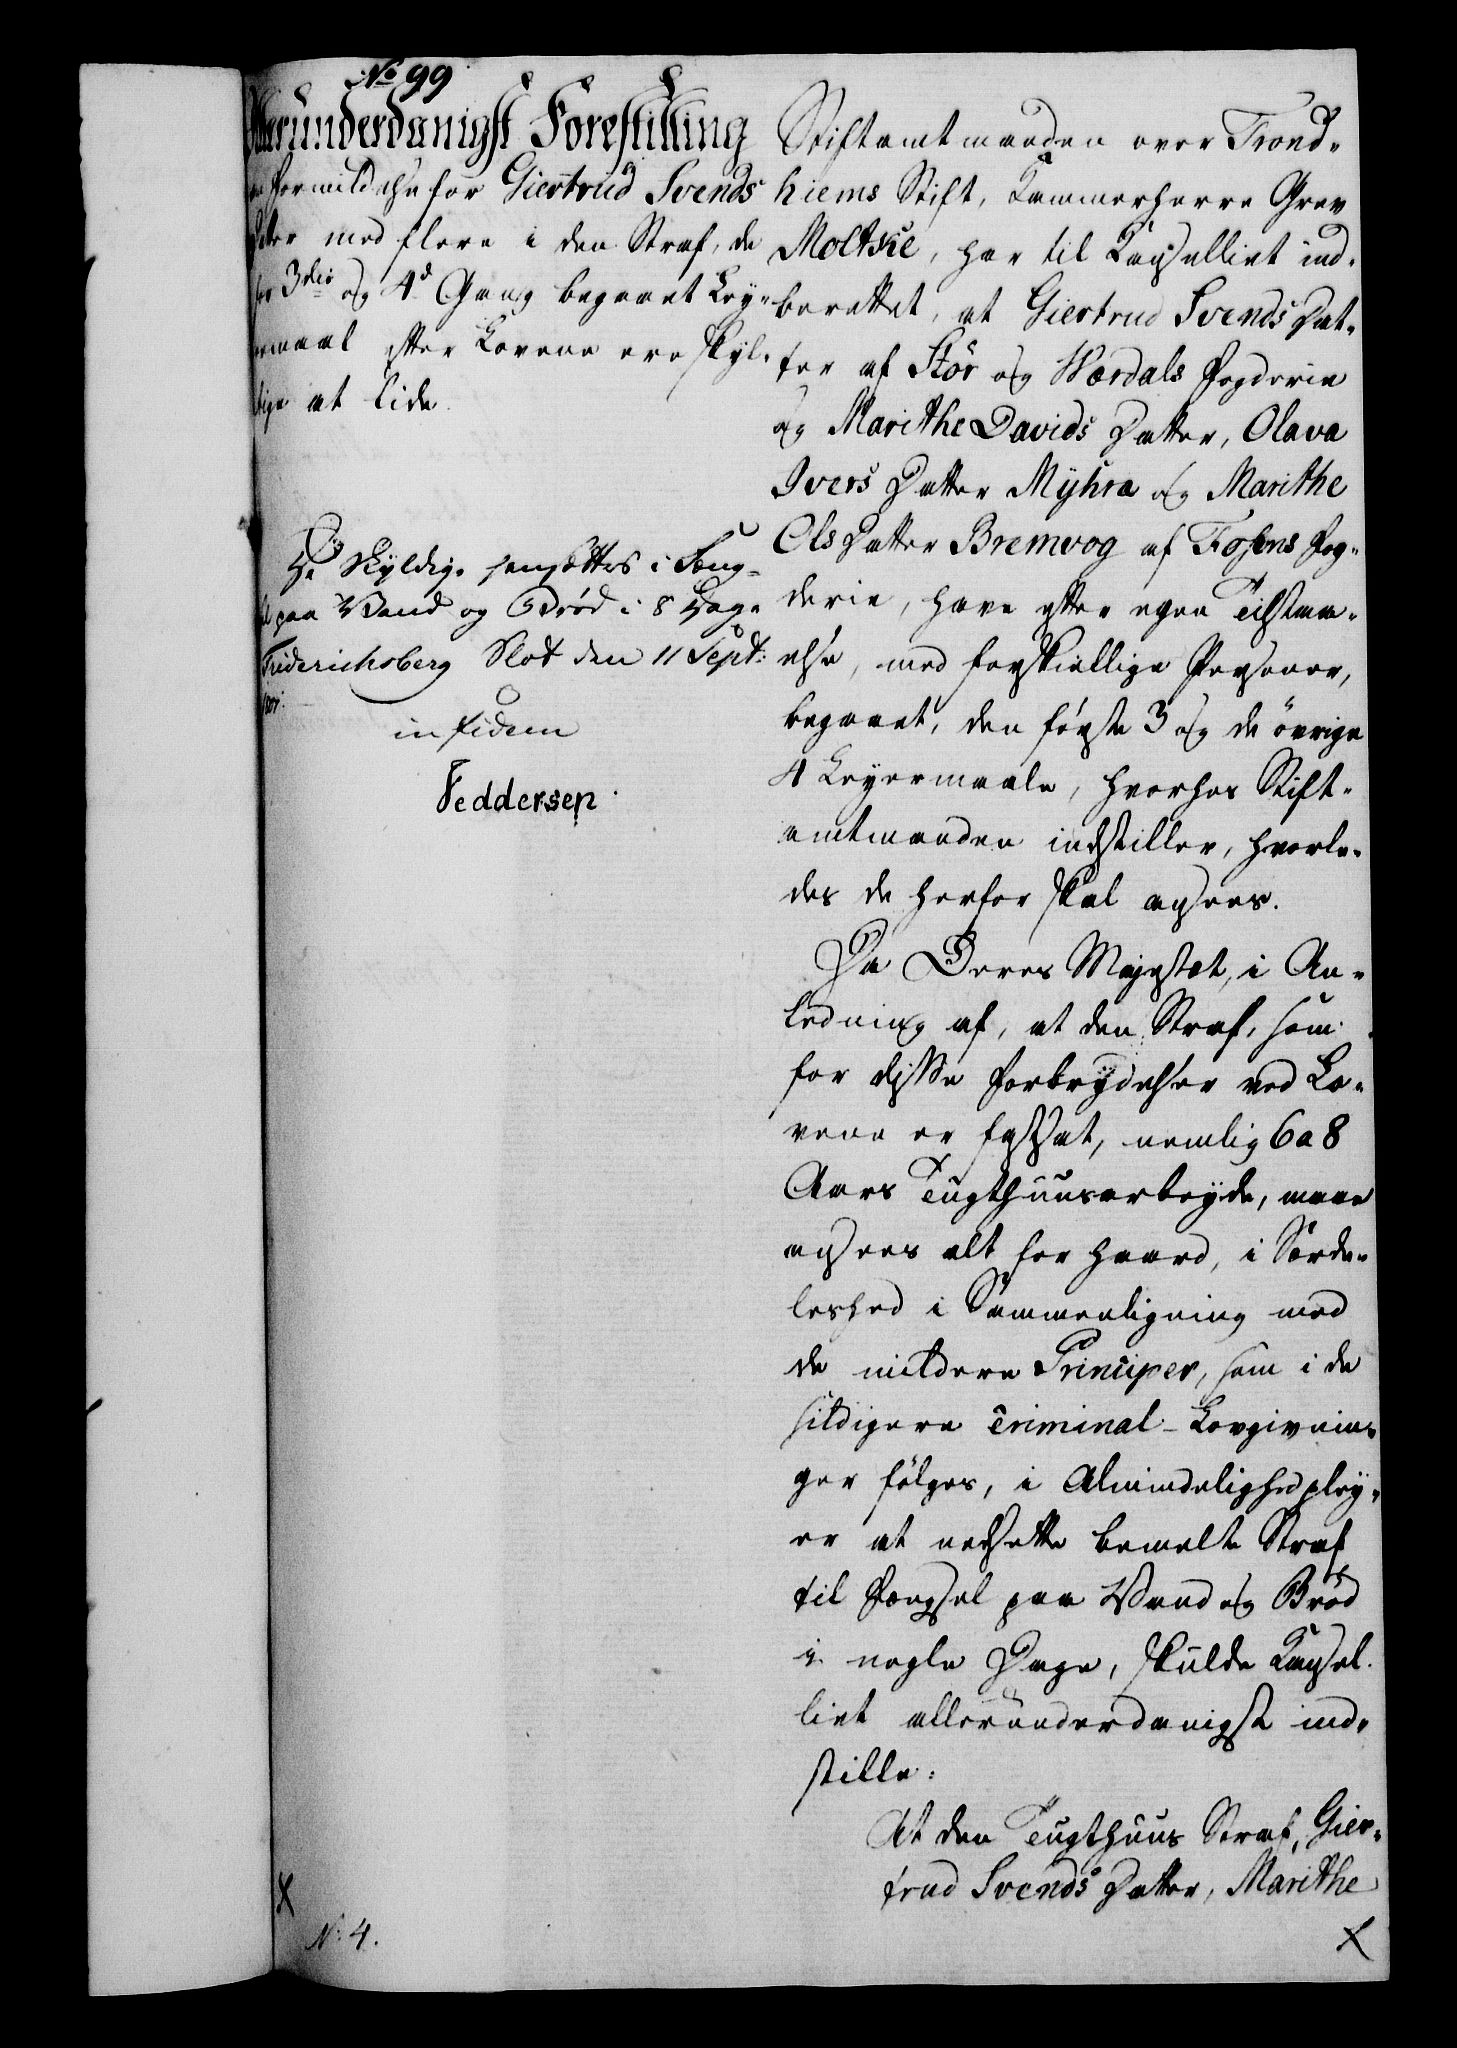 No 99
Allerunderdanigst Forestilling
om Formildelse for Giertrud Svends
Datter med flere i den Straf, de
for 3die og 4de Gang begaaet Ley-
ermaal efter Lovene ere skyl-
dige at lide.
De Skyldige hensættes i Fæng-
sel paa Vand og Brød i 8 Dage
Friderichsberg Slot den 11 Sept:
in fidem
Feddersen.
Stiftamtmanden over Trond-
hiems Stift, Kammerherre Grev
Moltke, har til Kanselliet ind-
berettet, at Giertrud Svends Dat-
ter af Stör og Værdals Fogderie
og Marithe Davids Datter, Olava
Ivers Datter Myhra og Marithe
Ols Datter Bremvog af Fosens Fog-
derie, have efter egen Tilstaa-
else, med forskiellige Personer,
begaaet, den første 3 og de øvrige
4 Leyermaale, hvorhos Stift-
amtmanden indstiller, hvorle-
des de herfor skal ansees.
Da Deres Majestæt, i An-
ledning af, at den Straf, som
for disse Forbrydelser ved Lo-
vene er fastsat, nemlig 6 a 8
Aars Tugthuusarbeyde, maae
ansees alt for haard, i Særde-
leshed i Sammenligning med
de mildere Principer, som i de
sildigere Criminal-Lovgivnin-
ger følges, i Almindelighed pley-
er at nedsætte bemelte Straf
til Fængsel paa Vand og Brød
i nogle Dage, skulde Kansel-
liet allerunderdanigst ind-
stille:
At den Tugthuus Straf, Gier-
trud Svends Datter, Marithe
N: 4.